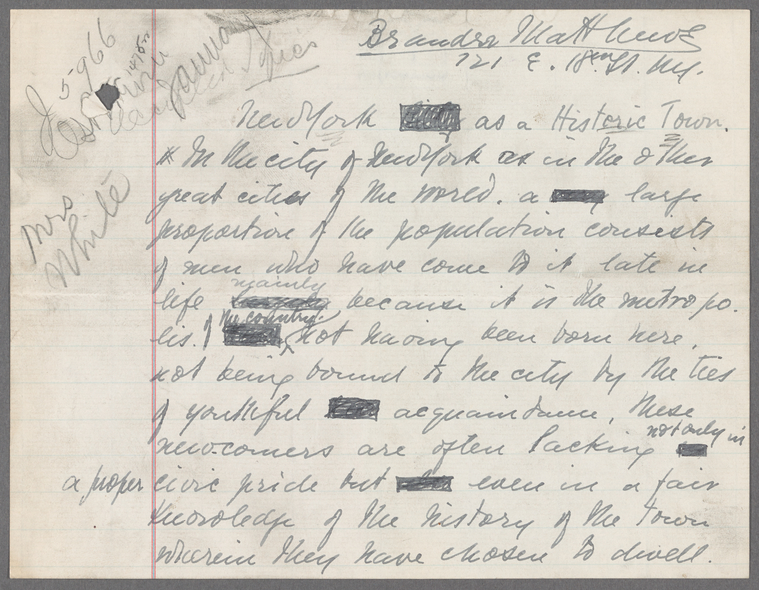 Brander Matthews
121 E. 18th St. N.Y.
J 5966
Mrs
White
New York as a Historic Town.
In the city of New York as in the other
great cities of the world, a large
proportion of the population consists
of men who have come to it late in
life mainly because it is the metropo-
lis of the country. Not having been born here,
not being bound to the city by the ties
of youthful acquaintance, these
newcomers are often lacking not only in
a proper civic pride but even in a fair
knowledge of the history of the town
wherein they have chosen to dwell.